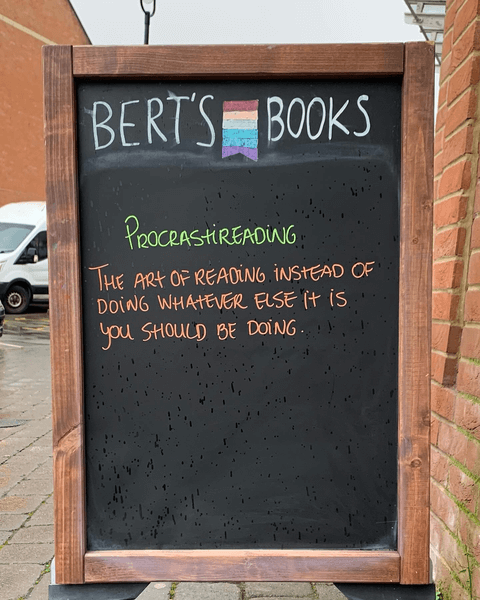 BERT'S BOOKS
PROCRASTIREADING
THE ART OF READING INSTEAD OF
DOING WHATEVER ELSE IT IS
YOU SHOULD BE DOING.